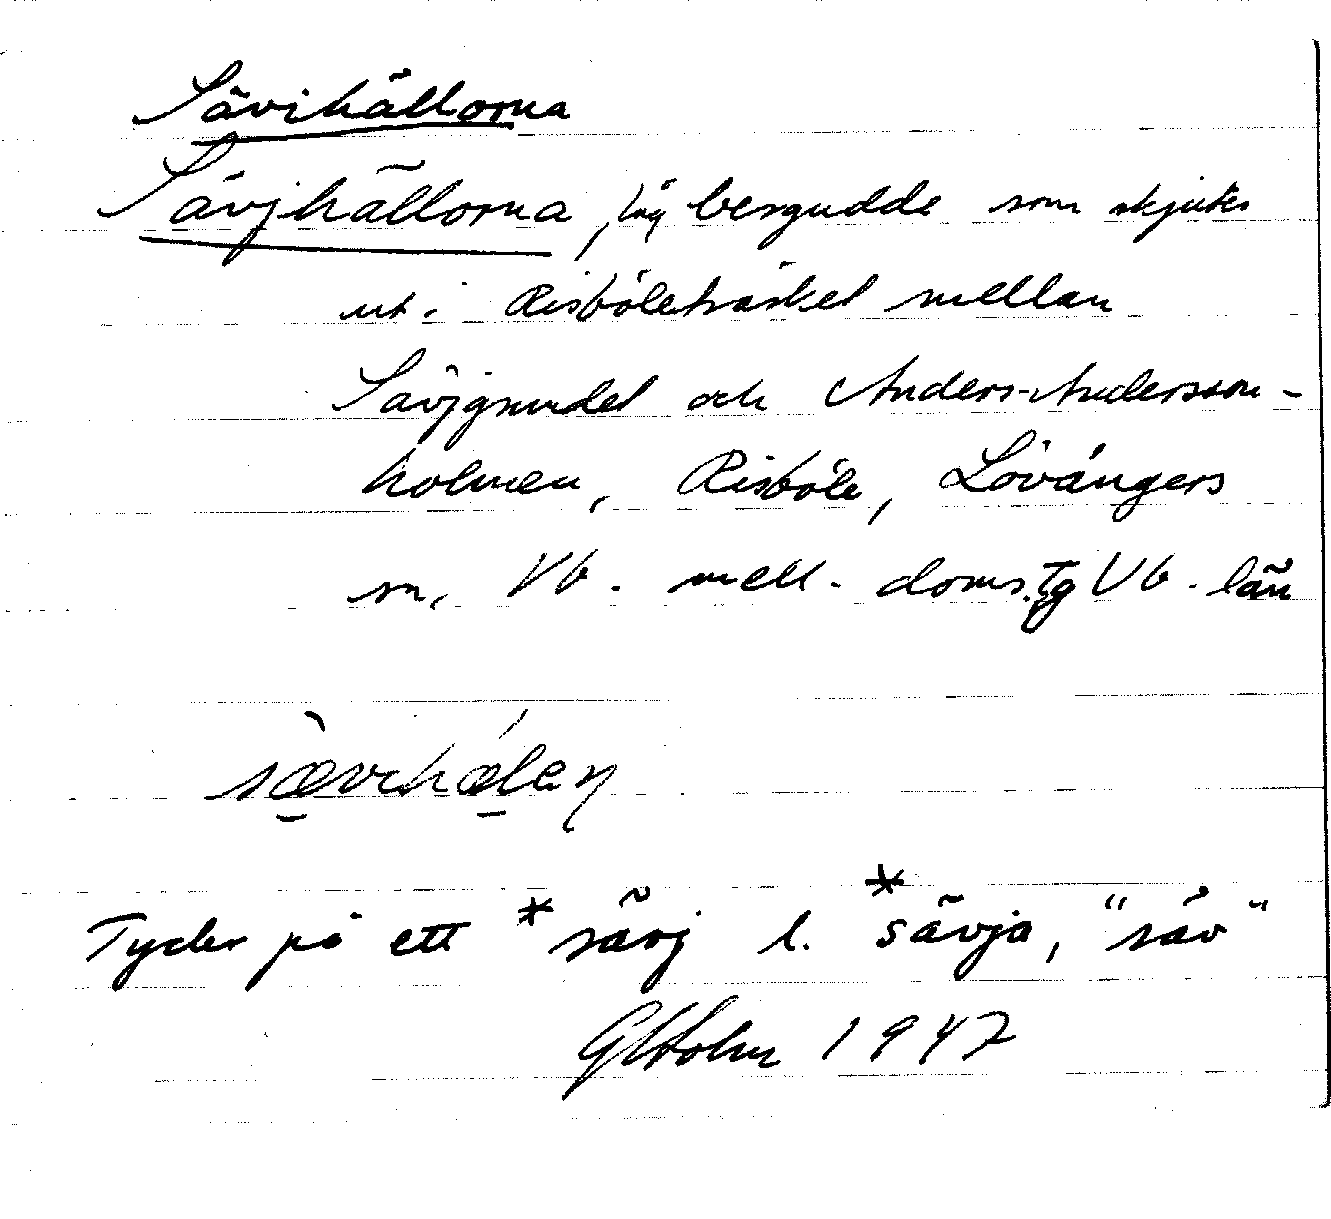 Sävihällorna
Sävjhällorna, låg bergudde som skjuter
ut i Risböleträsket mellan
Sävjgrundet och Anders-Andersson-
holmen, Risböle, Lövångers
sn, Vb. mell. doms.tg Vb. län
Tyder på ett *sävj l. *sävja, "säv"
GHolm 1947